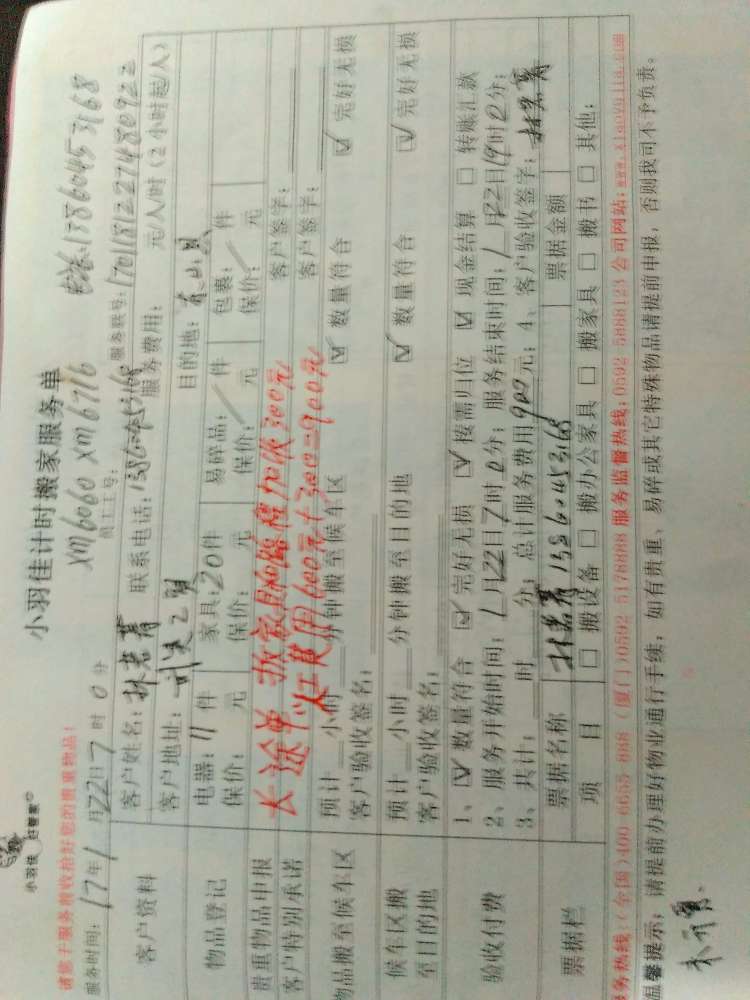 小羽佳 好管家
小羽佳计时搬家服务单
请您于服务前收拾好您的贵重物品!
XM6060 XM6716
13860453168
服务时间: 17年1月22日7时0分
员工工号:
服务联号: 170118122748092
客户资料
客户姓名: 林若菁 联系电话: 13860453168 服务费用: 元/人/时(2小时起/人)
客户地址: 目的地: 东山县
物品登记
电器: 11件 家具: 20件 易碎品: / 件 包裹: / 件
保价: 元 保价: 元 保价: 元 保价: 元
贵重物品申报
客户签字:
客户特别承诺
客户签字:
长途单 搬家具和路程加收300元
人工费用600元+300=900元
物品搬至候车区
预计 小时 分钟搬至候车区 ☑ 数量符合 ☑ 完好无损
客户验收签名:
候车区搬至目的地
预计 小时 分钟搬至目的地 ☑ 数量符合 ☑ 完好无损
客户验收签名:
验收付费
1、☑ 数量符合 ☑ 完好无损 ☑ 按需归位 ☑ 现金结算 □ 转账汇款
2、服务开始时间: 1月22日7时0分; 服务结束时间: 1月22日19时0分;
3、共计: 时 分; 总计服务费用900元; 4、客户验收签字: 林若菁
票据栏
票据名称 林若菁 13860453168 票据金额
项目 □ 搬设备 □ 搬办公家具 □ 搬家具 □ 搬书 □ 其他:
务热线:(全国)400 6655 888 (厦门)0592 5178888 服务监督热线:0592 5888123 公司网站:www.xiaoyujia.com
温馨提示: 请提前办理好物业通行手续, 如有贵重、易碎或其它特殊物品请提前申报, 否则我司不予负责。